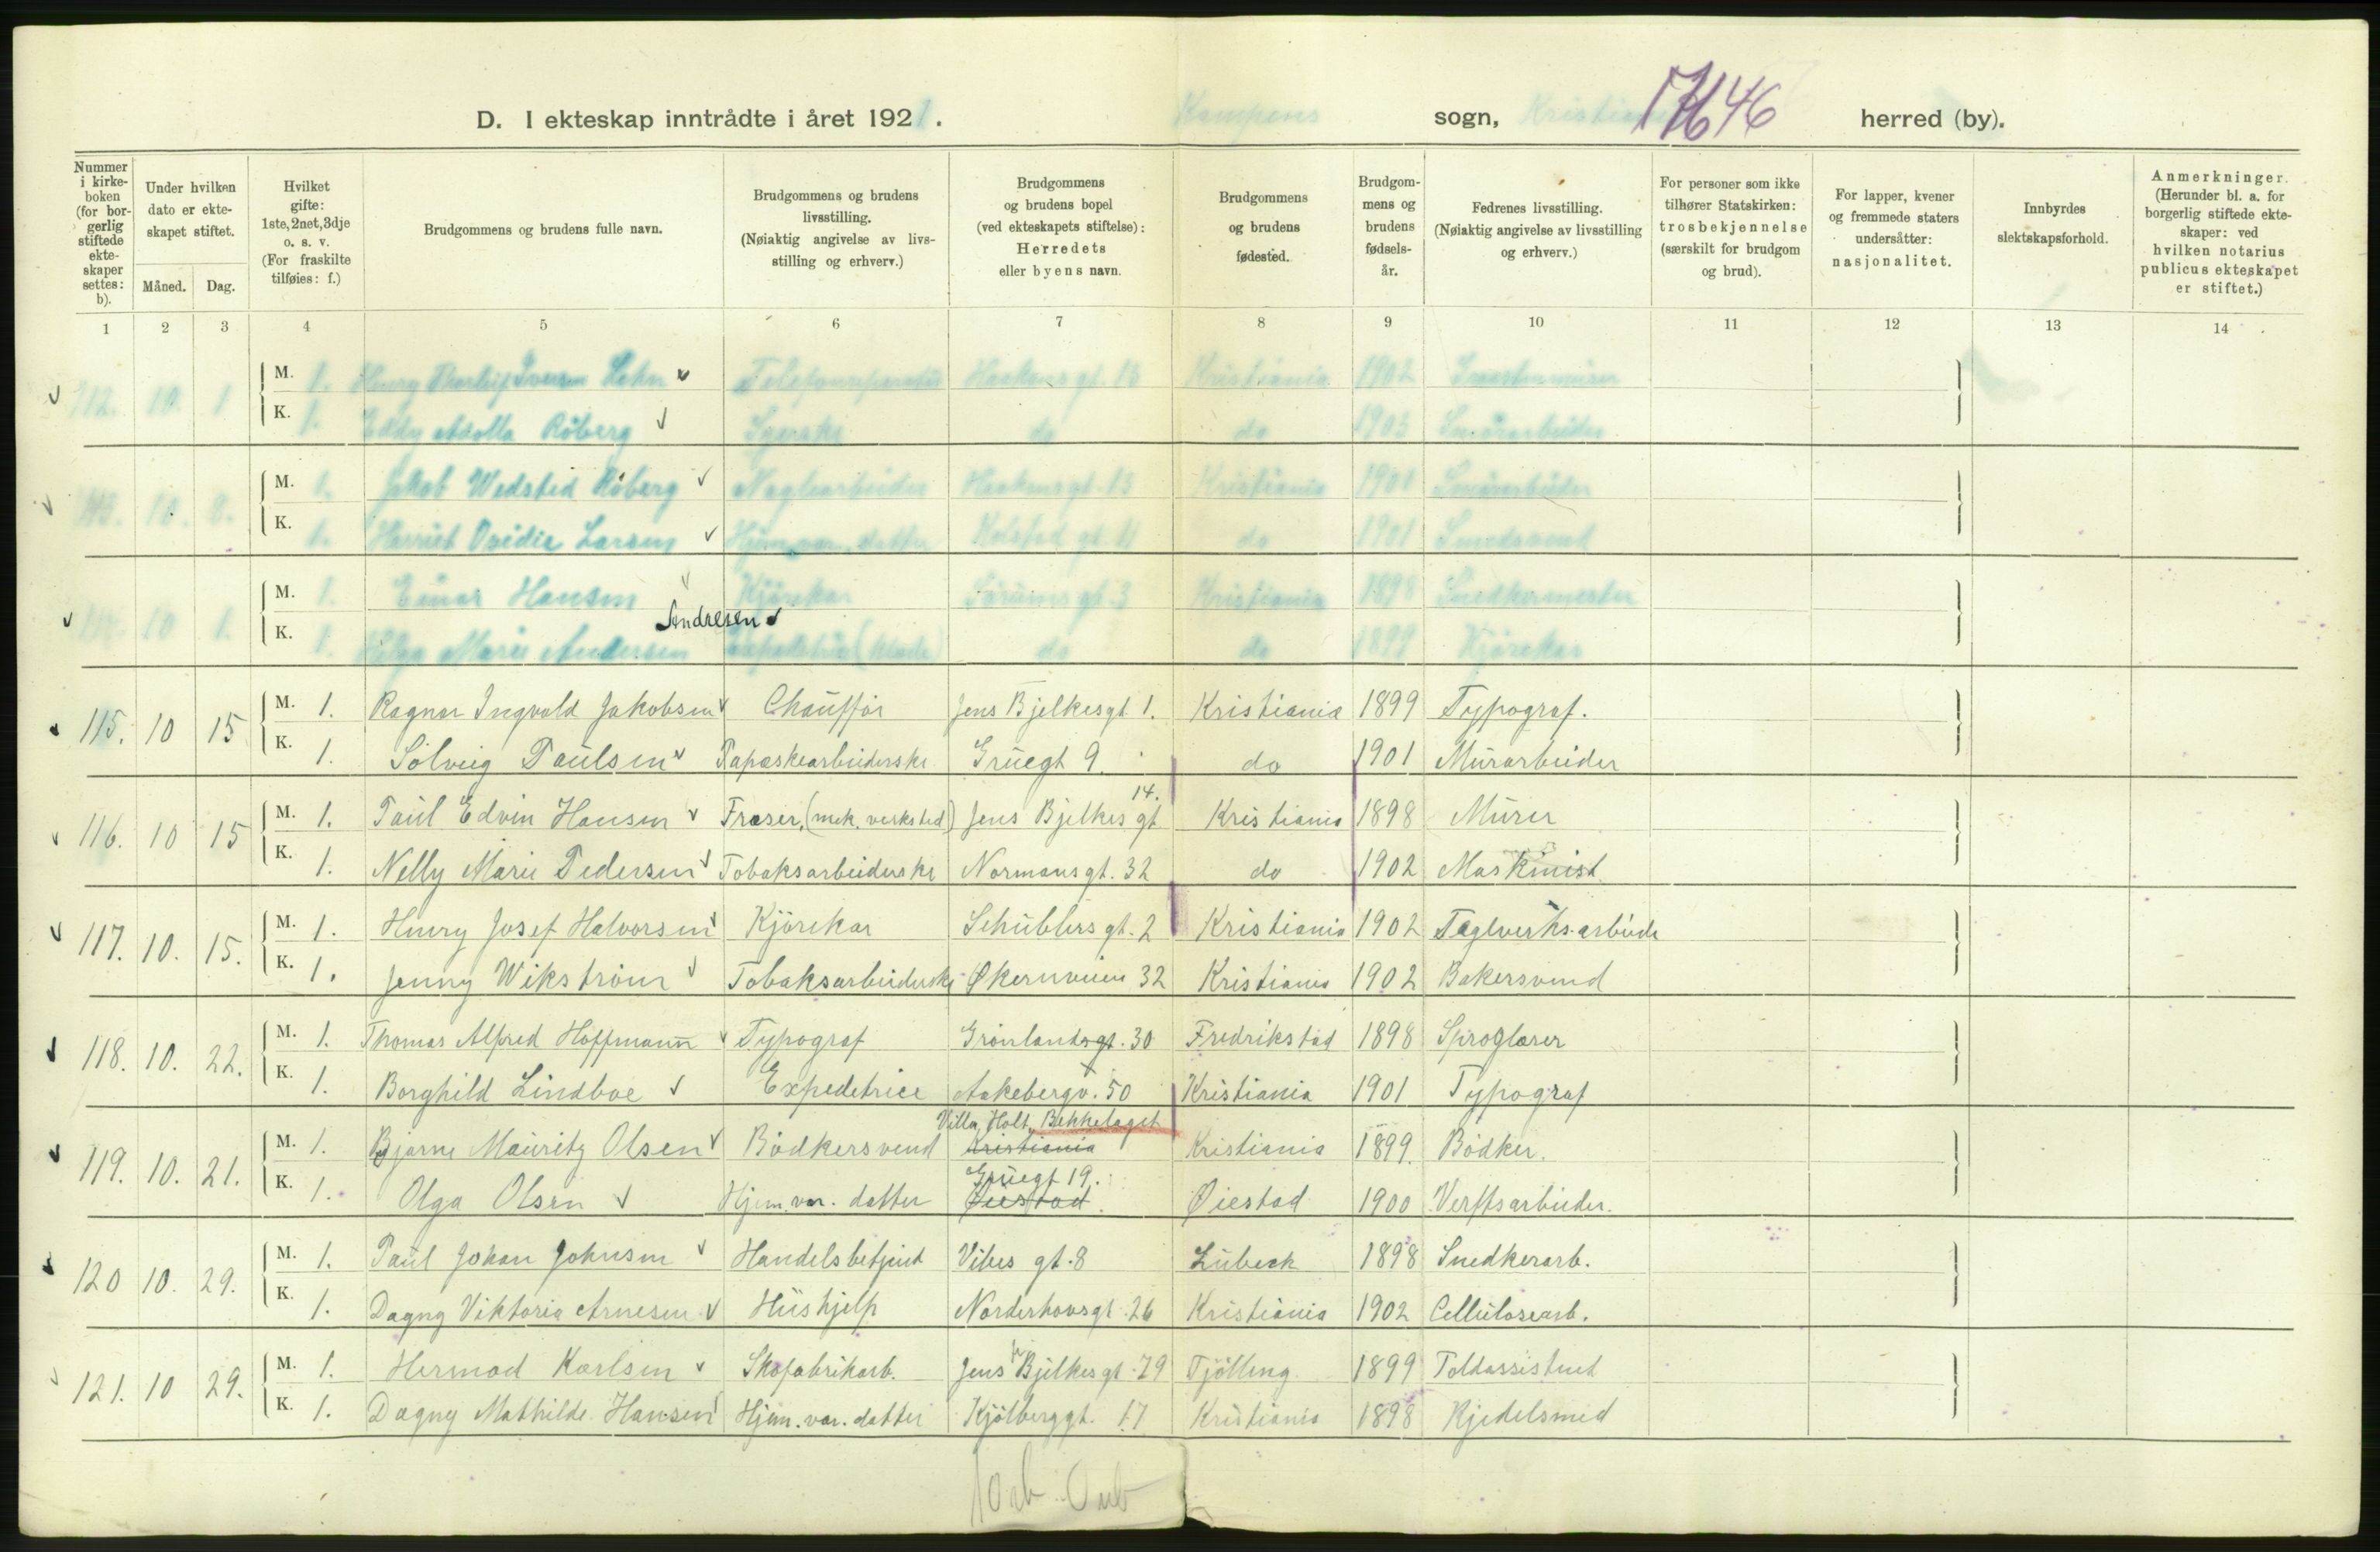 D. I ekteskap inntrådte i året 1921. Kampens sogn, Kristiania 46 herred (by).
Nummer i kirke-boken (for bor-gerlig stiftede ekte-skaper settes: b).
Under hvilken dato er ekte-skapet stiftet.
Måned.
Dag.
Hvilket gifte: 1ste, 2net, 3dje o. s. v. (For fraskilte tilføies: f.)
Brudgommens og brudens fulle navn.
Brudgommens og brudens livsstilling. (Nøiaktig angivelse av livs-stilling og erhverv.)
Brudgommens og brudens bopel (ved ekteskapets stiftelse): Herredets eller byens navn.
Brudgommens og brudens fødested.
Brudgom-mens og brudens fødsels-år.
Fedrenes livsstilling. (Nøiaktig angivelse av livsstilling og erhverv.)
For personer som ikke tilhører Statskirken: trosbekjennelse (særskilt for brudgom og brud).
For lapper, kvener og fremmede staters undersåtter: nasjonalitet.
Innbyrdes slektskapsforhold.
Anmerkninger. (Herunder bl. a. for borgerlig stiftede ekte-skaper: ved hvilken notarius publicus ekteskapet er stiftet.)
1 2 3 4 5 6 7 8 9 10 11 12 13 14
112. 10 1 M. 1. Henry Thorleif Iversen Lehn Haakonsgt. 13 Kristiania 1902
K. 1. Eddy Røberg Syerske do do 1903 Smørarbeider
113. 10. 8. M. 1. Jakob Wedsted Røberg Naglearbeider Haakonsgt. 13 Kristiania 1901 Smørarbeider
K. 1. Harriet Ovidia Larsen Hjem.vær. datter Kolstad gt 11 do 1901
114. 10 1. M. 1. Einar Hansen Kjørekar Sørumsgt. 3 Kristiania 1898 Snedkermester
Andresen
K. 1. Helga Marie Andersen do do 1899 Kjørekar
115. 10 15 M. 1. Ragnar Ingvald Jakobsen Chauffør Jens Bjelkesgt 1. Kristiania 1899 Typograf.
K. 1. Solveig Paulsen Papæskearbeiderske Gruegt 9. do 1901 Murarbeider
116. 10 15 M. 1. Paul Edvin Hansen Fræser, (mek. verksted) Jens Bjelkes gt 14. Kristiania 1898 Murer
K. 1. Nelly Marie Pedersen Tobaksarbeiderske Normansgt. 32 do 1902 Maskinist
117. 10. 15. M. 1. Henry Josef Halvorsen Kjørekar Schüblers gt. 2 Kristiania 1902 Teglverks.arbeide
K. 1. Jenny Wikstrøm Tobaksarbeiderske Økernveien 32 Kristiania 1902 Bakersvend
118. 10. 22. M. 1. Thomas Alfred Hoffmann Typograf Grønlandsgt. 30 Fredrikstad 1898
K. 1. Borghild Lindboe Expeditrice Aakebergv. 50 Kristiania 1901 Typograf
Villa Holt, Bekkelaget
119. 10. 21. M. 1. Bjarne Mauritz Olsen Bødkersvend Kristiania Kristiania 1899. Bødker.
Gruegt 19.
K. 1. Olga Olsen Hjem.vær. datter Øiestad. Øiestad 1900 Verftsarbeider.
120 10. 29. M. 1. Paul Johan Johnsen Handelsbetjent Vibes gt. 8 Lübeck 1898 Snedkerarb.
K. 1. Dagny Viktoria Arnesen Hushjelp Norderhovsgt. 26 Kristiania 1902 Cellulosearb.
121. 10 29. M. 1. Hermod Karlsen Skofabrikarb. Jens Bjelkesgt. 79 Tjølling 1899 Toldassistent
K. 1. Dagny Mathilde Hansen Hjem.vær. datter Kjølberggt. 17 Kristiania 1898 Kjedelsmed